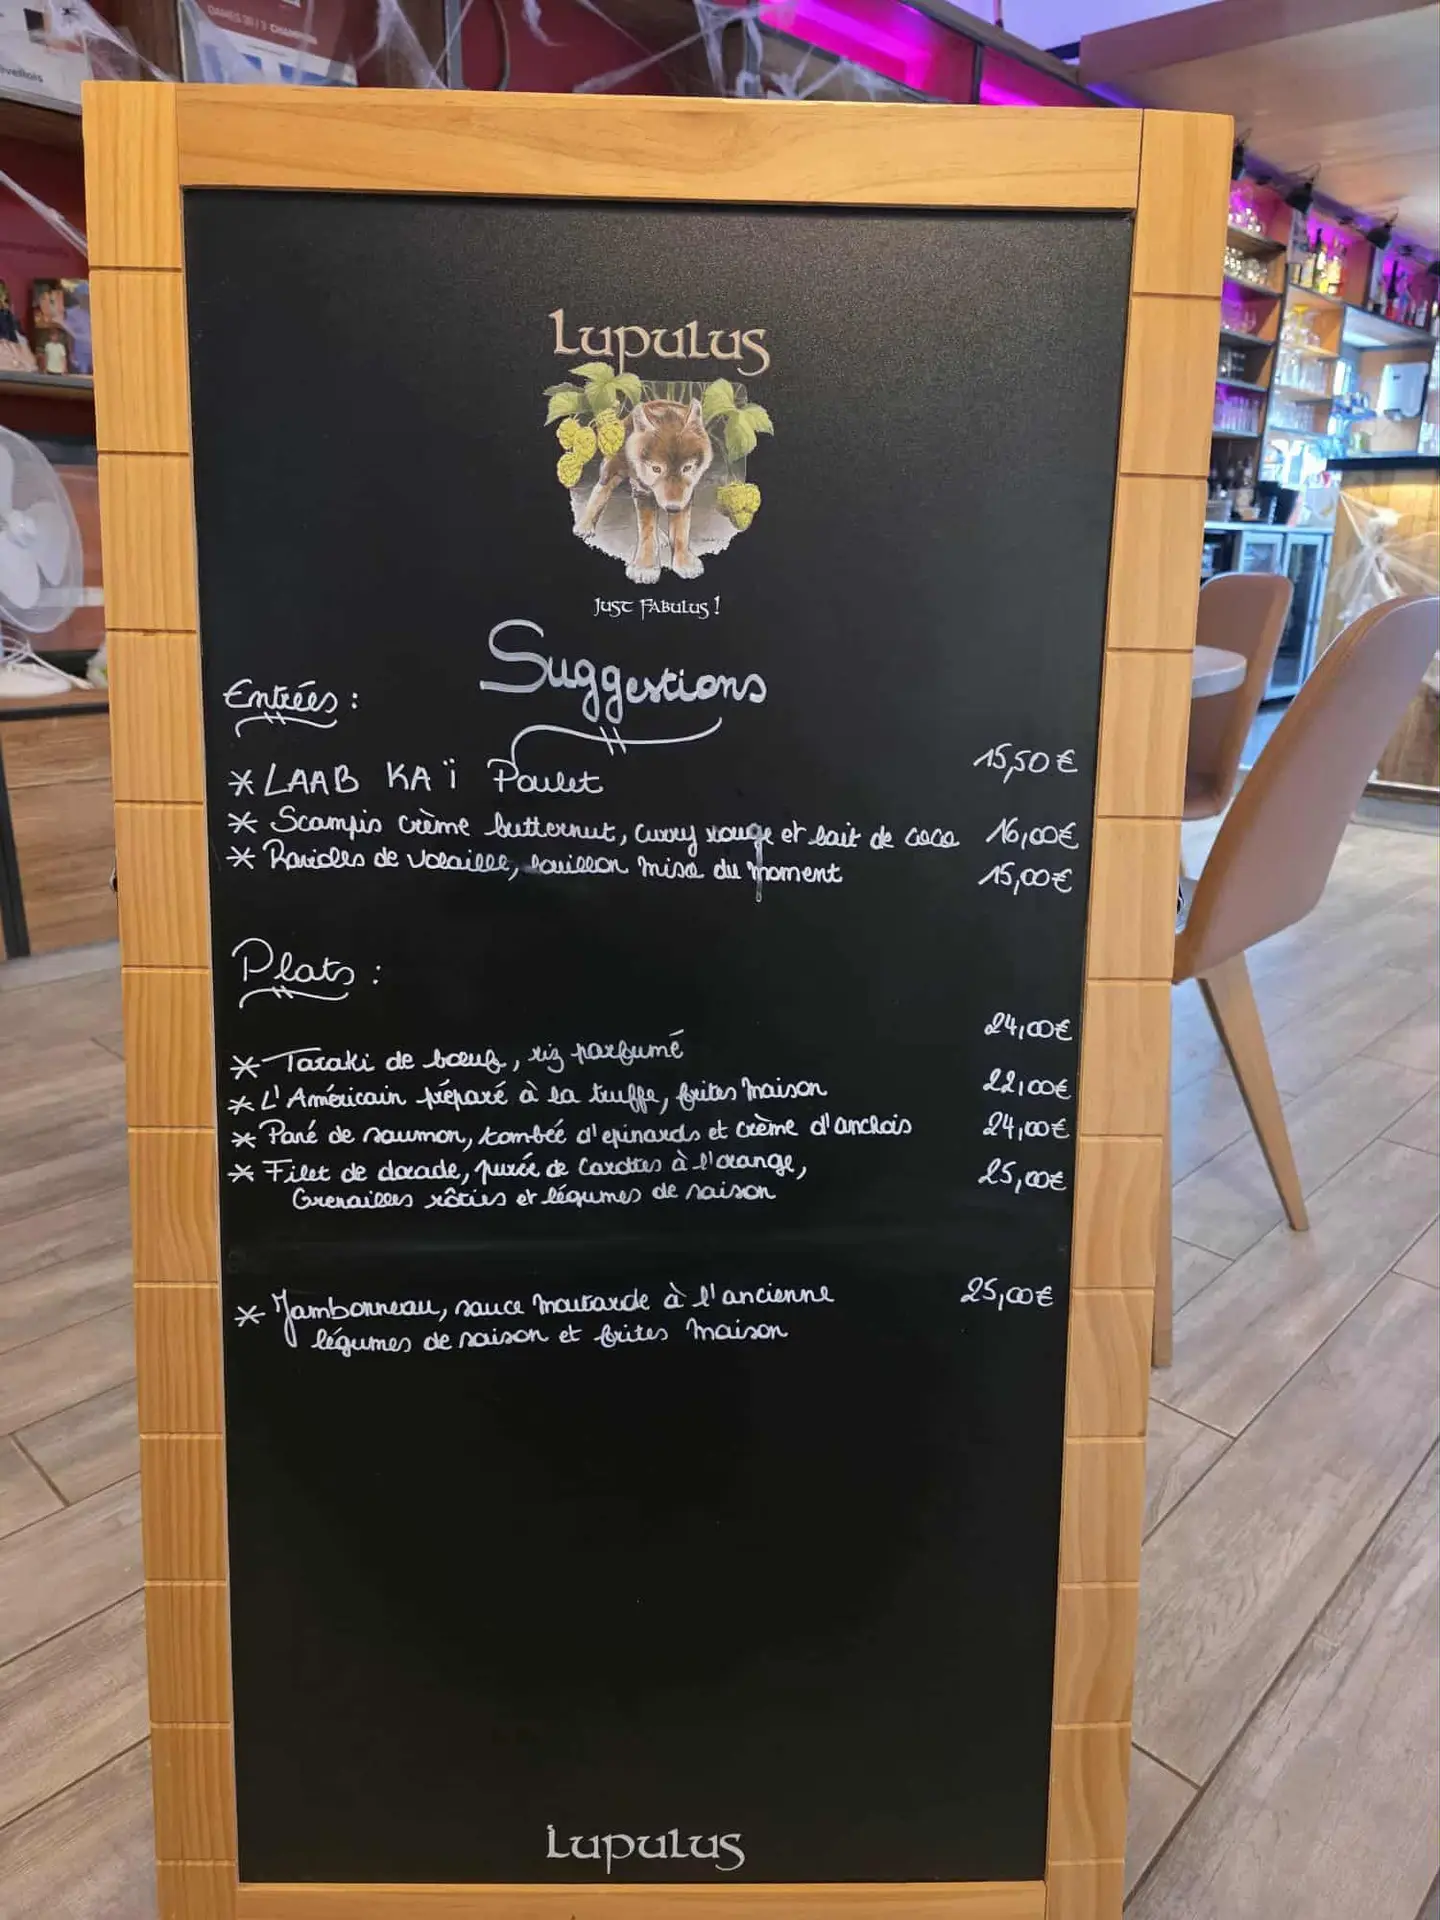 DAMES 2013 CHAMPION
Lupulus
Just Fabulus !
Suggestions
Entrées :
* LAAB KAÏ Poulet 15,50€
* Scampis crème butternut, curry rouge et lait de coco 16,00€
* Ravioles de volaille, bouillon miso du moment 15,00€
Plats :
* Tataki de bœuf, riz parfumé 24,00€
* L'Américain préparé à la truffe, frites maison 22,00€
* Pavé de saumon, tombée d'epinards et crème d'anchois 24,00€
* Filet de dorade, purée de carottes à l'orange, 25,00€
Grenailles rôties et légumes de saison
* Jambonneau, sauce moutarde à l'ancienne 25,00€
légumes de saison et frites maison
Lupulus